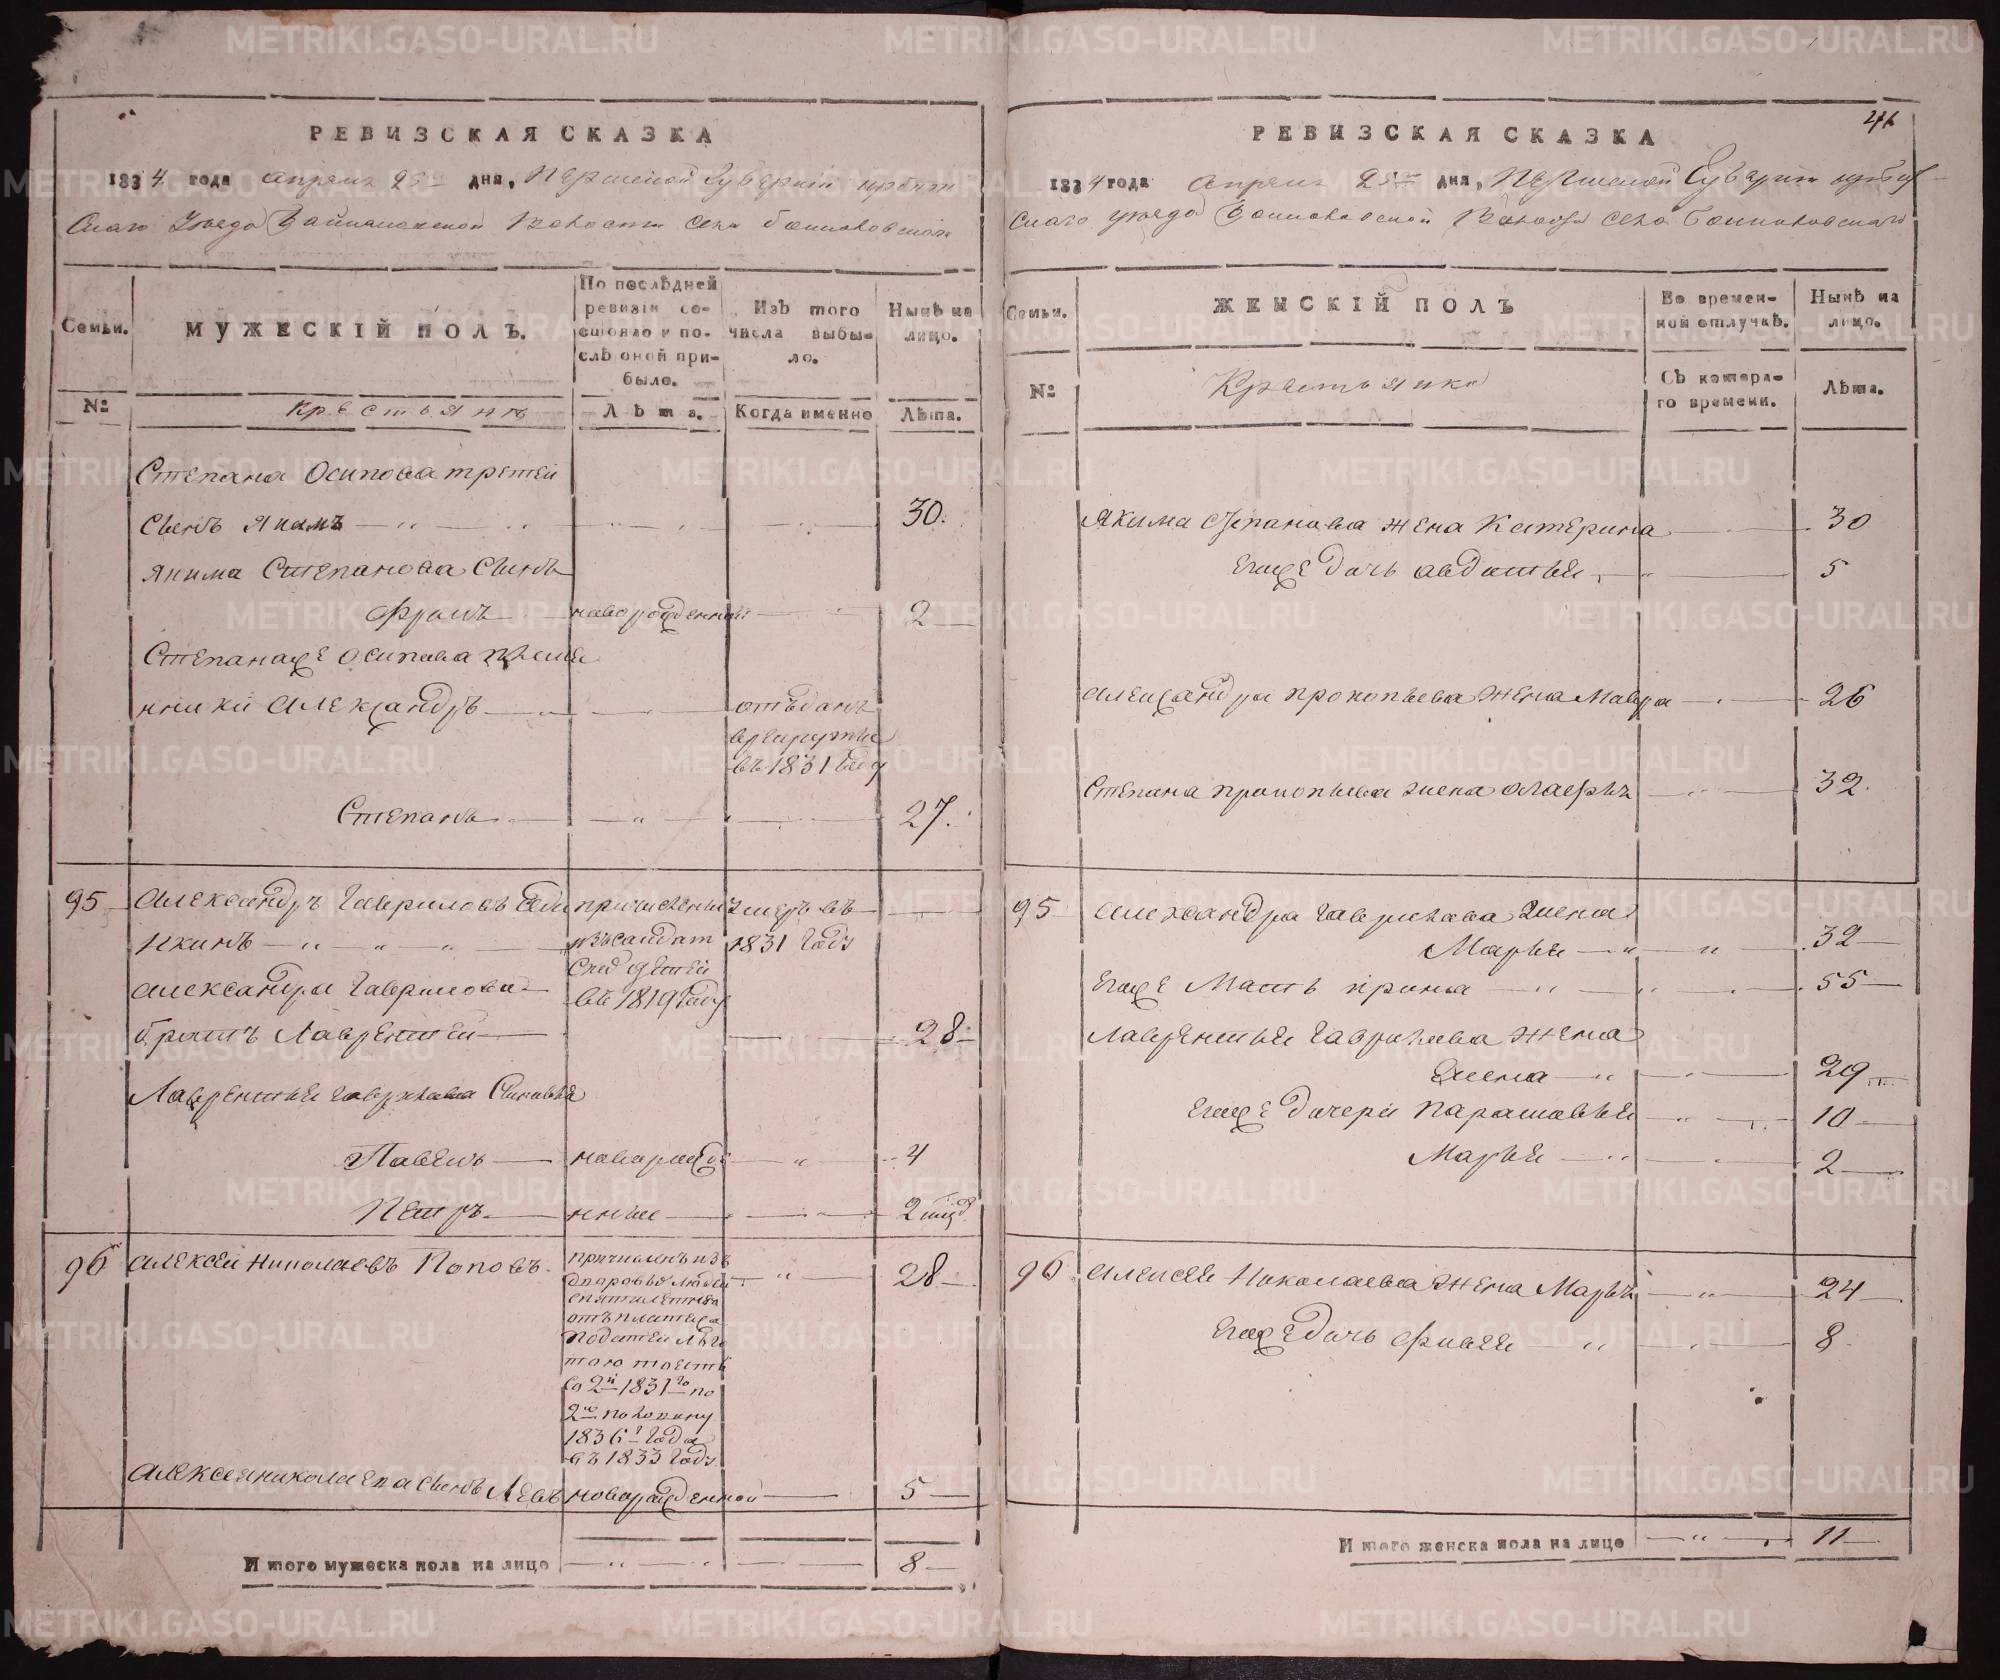 РЕВИЗСКАЯ СКАЗКА
1834 года апреля 25 дня, Пермской Губернии Ирбит
скаго Уезда Волости села
Семьи.
МУЖЕСКІЙ ПОЛЪ.
По послѣдней
ревизіи со-
стояло и по-
слѣ оной при-
было.
Изъ того
числа выбы-
ло.
Нынѣ на
лицо.
№
Крестьянъ
Лѣта.
Когда именно
Лѣта.
Степана Осипова третей
сынъ Якимъ 30.
Якима Степанова сынъ
Фролъ новорожденный 2
Степана же Осипова племя
нники Александръ отъданъ
в рекруты
въ 1831 году
Степанъ 27.
95 Александръ Гавриловъ причисленъ умеръ въ
нкинъ изъ салдат 1831 году
Александра Гаврилова
ских детей
въ 1819 году
братъ Лаврентей 28
Лаврентья Гаврилова сыновья
Павелъ новорожде 4
Петръ нные 2
96 Алексей Николаевъ Поповъ. причисленъ изъ 28
дворовых людей
отъ платежа
податей льго
тою тоесть
со 2й 1831го по
2ю половину
1836 года
въ 1833 году
Алексея Николаева сынъ Левъ новорожденной 5
Итого мужеска пола на лицо 8
РЕВИЗСКАЯ СКАЗКА
1834 года апреля 25 дня, Пермской Губернии Ирбит
скаго уезда Волости села
Семьи.
ЖЕНСКІЙ ПОЛЪ
Во времен-
ной отлучкѣ.
Нынѣ на
лицо.
№
Крестьянке
Съ котора-
го времени.
Лѣта.
Якима Степанова жена Катерина 30
Егоже дочь Авдотья 5
Александра Прокопьева жена Мавра 26
Степана Прокопьева жена 32.
95 Александра Гаврилова жена
Марья 32
Егоже мать Ирина 55
Лаврентья Гаврилова жена
Елена 29
Егоже дочери Парасковья 10
Марья 2
96 Алексея Николаева жена Марья 24
Егоже дочь 8
Итого женска пола на лицо 11
METRIKI.GASO-URAL.RU